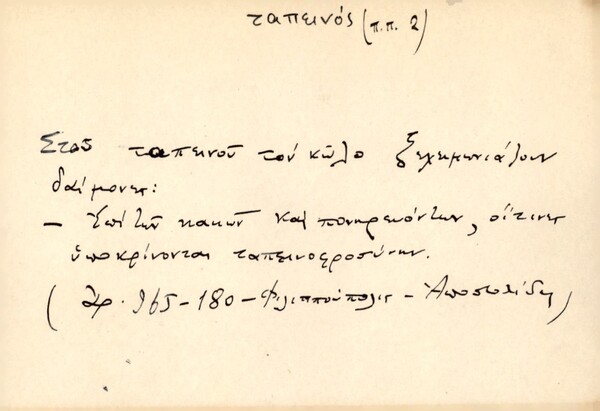 ταπεινός (π.π. 2)
Στου ταπεινού τον κώλο ξεχειμωνιάζουν
δαίμονες:
– Ἐπί τῶν κακῶν καί πονηρευόντων, οἵτινες
ὑποκρίνονται ταπεινοφροσύνην.
( Ἀρ. 965-180-Φιλιππούπολις - Ἀποστολίδης )